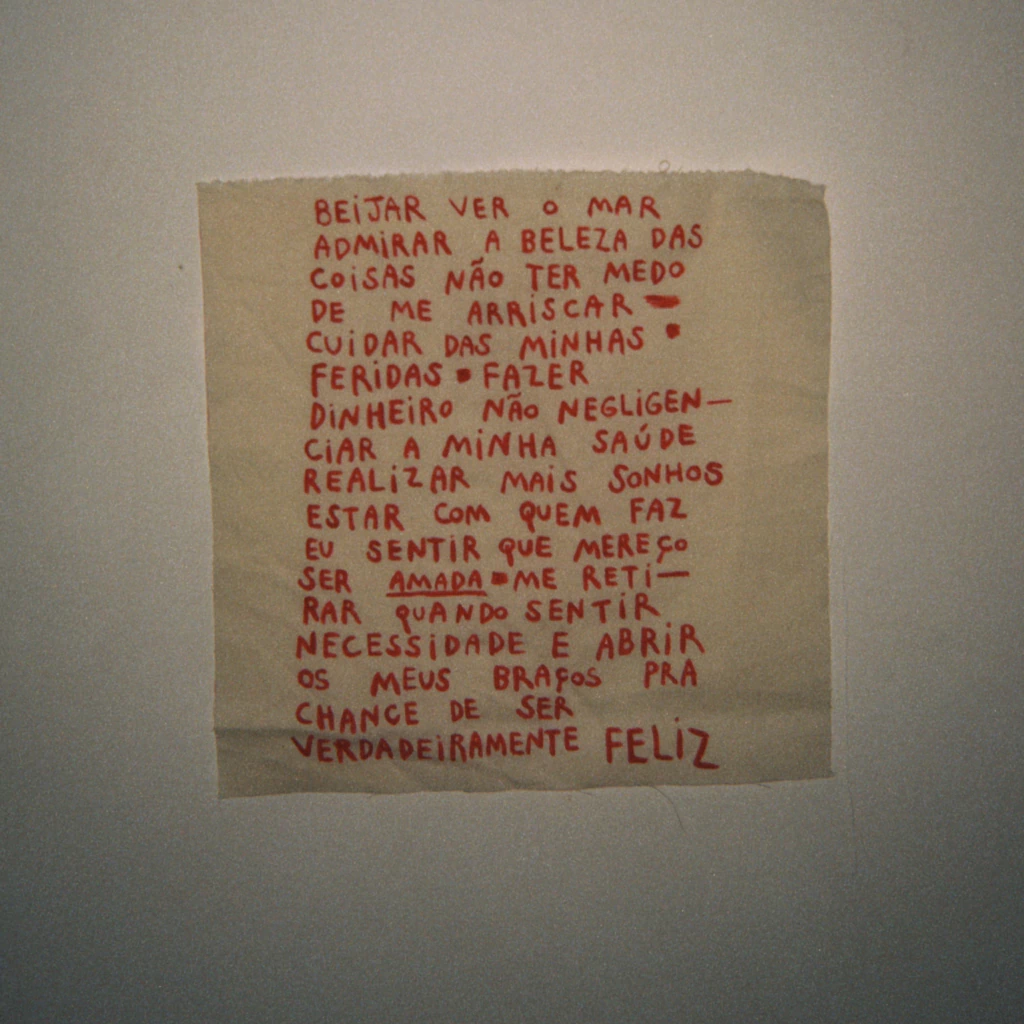 BEIJAR VER O MAR
ADMIRAR A BELEZA DAS
COISAS NÃO TER MEDO
DE ME ARRISCAR –
CUIDAR DAS MINHAS •
FERIDAS • FAZER
DINHEIRO NÃO NEGLIGEN–
CIAR A MINHA SAÚDE
REALIZAR MAIS SONHOS
ESTAR COM QUEM FAZ
EU SENTIR QUE MEREÇO
SER AMADA • ME RETI–
RAR QUANDO SENTIR
NECESSIDADE E ABRIR
OS MEUS BRAÇOS PRA
CHANCE DE SER
VERDADEIRAMENTE FELIZ